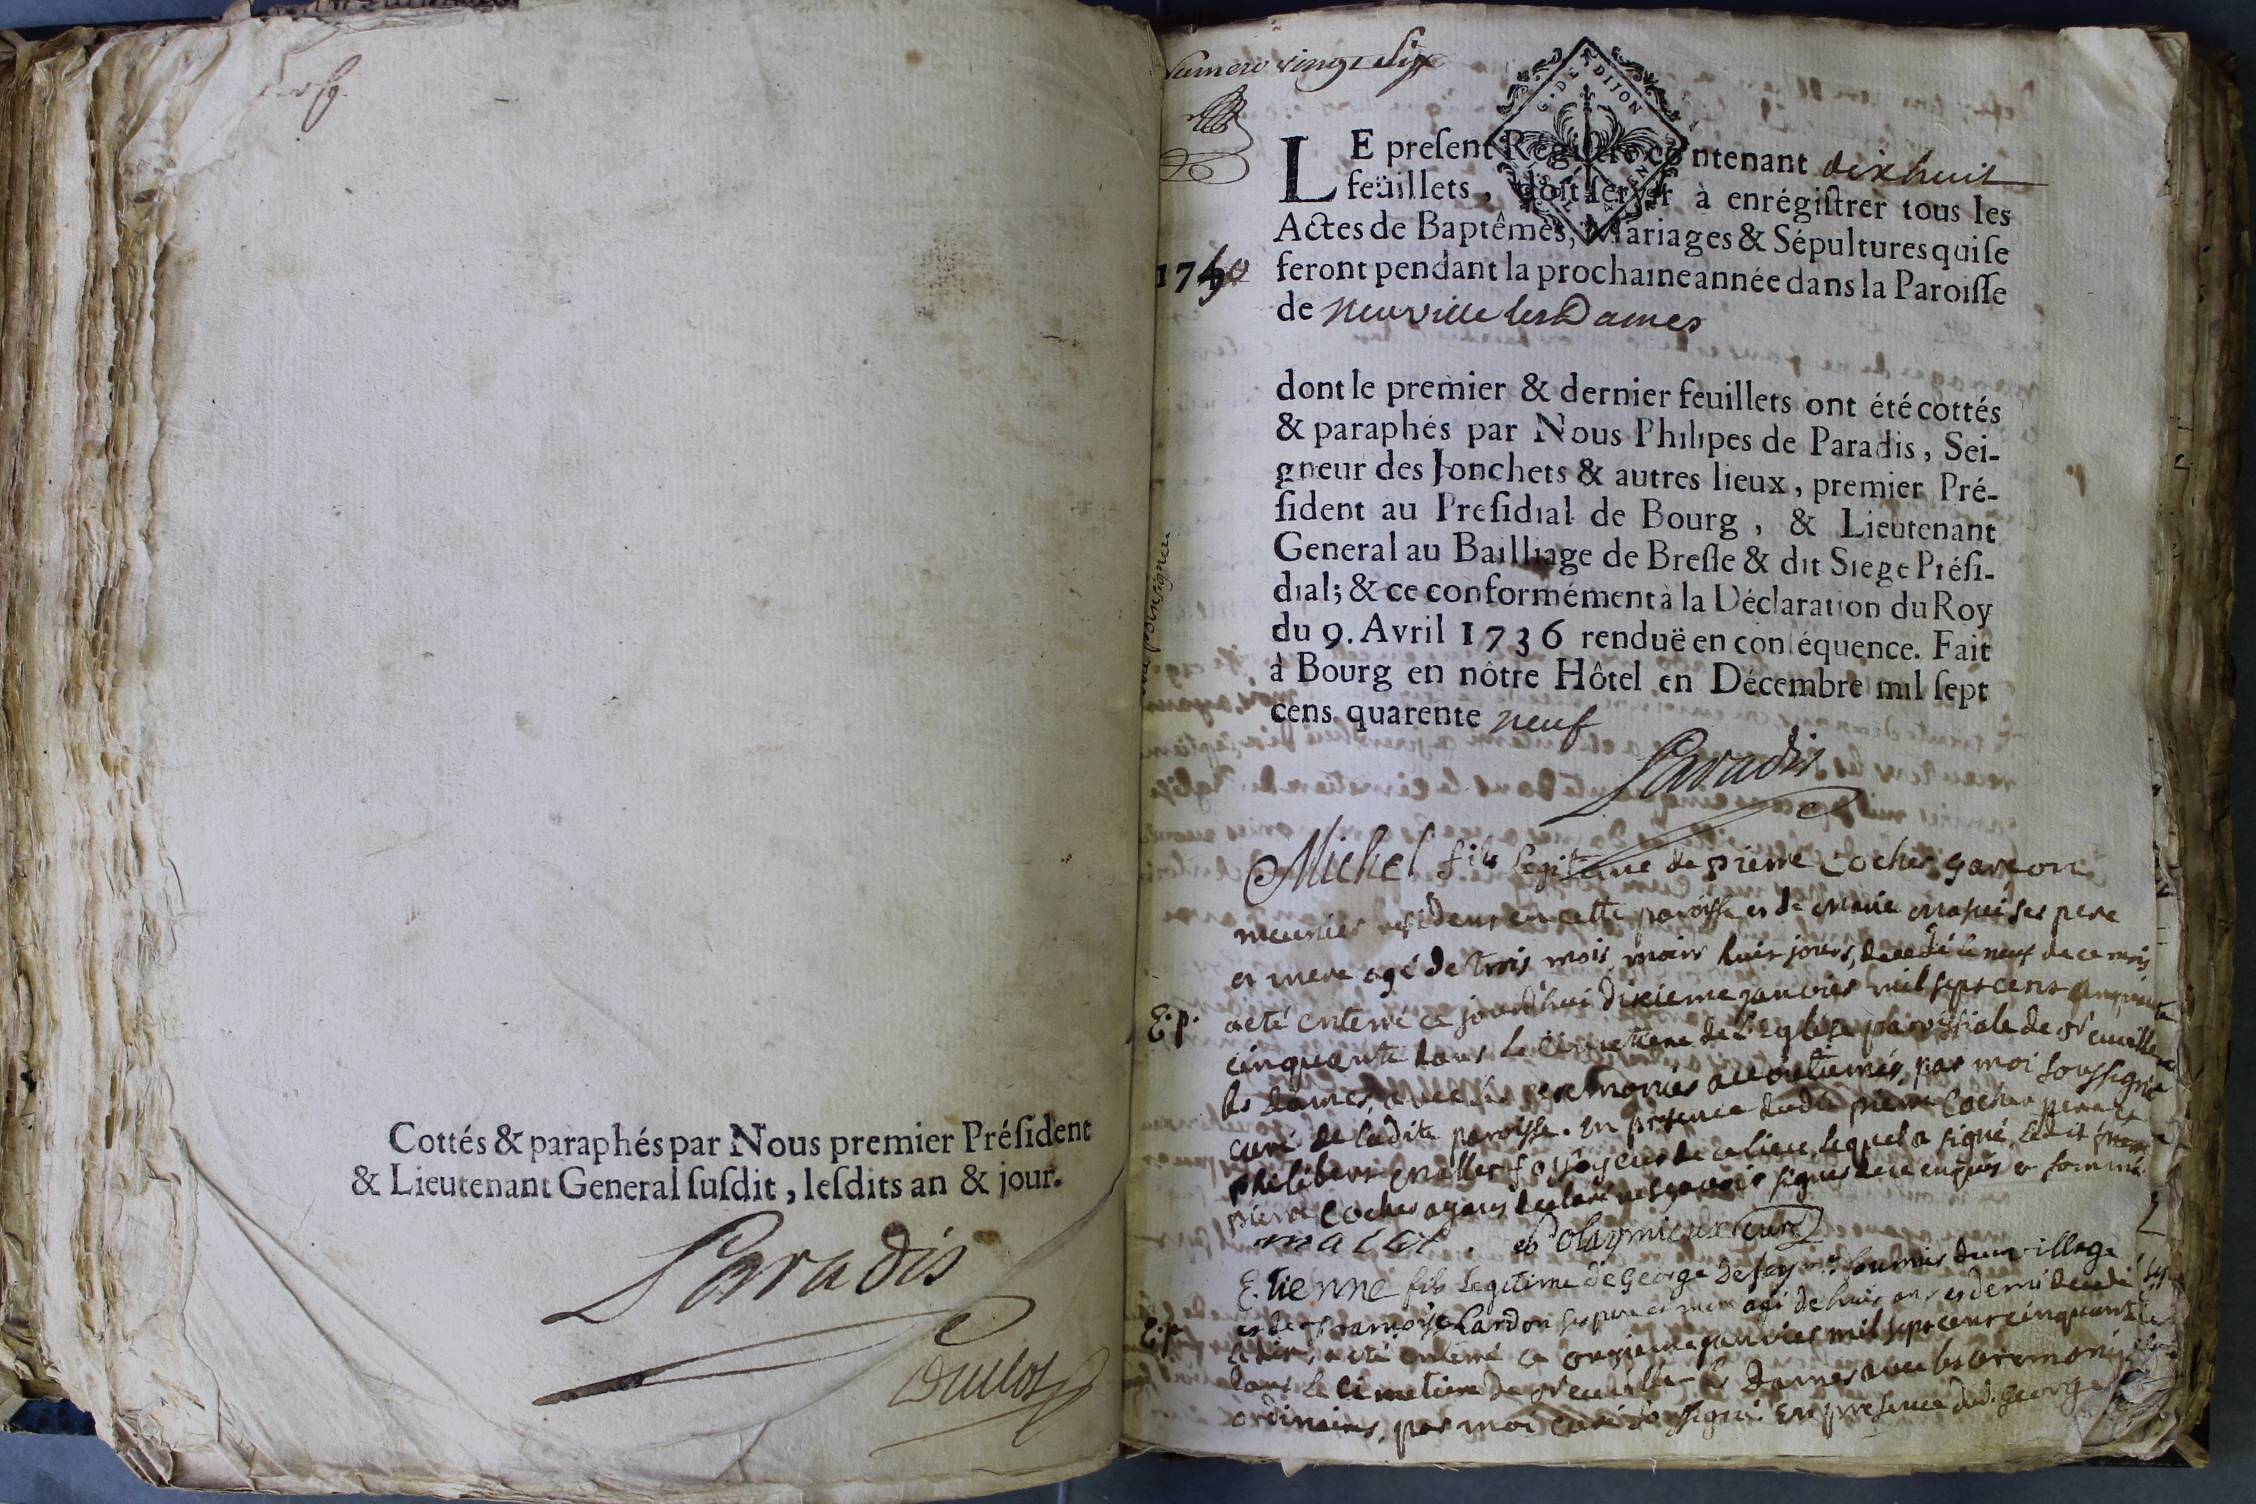 Cottés & paraphés par Nous premier Préſident
& Lieutenant General ſuſdit, leſdits an & jour.
Paradis
numero vingt six
G. D. DIJON
LE preſent Regiſtre contenant dix huit
feüillets, doit ſervir à enrégiſtrer tous les
Actes de Baptêmes, Mariages & Sépultures qui ſe
1750 feront pendant la prochaine année dans la Paroiſſe
de neuville les Dames
dont le premier & dernier feuillets ont été cottés
& paraphés par Nous Philipes de Paradis, Sei-
gneur des Jonchets & autres lieux, premier Pré-
ſident au Preſidial de Bourg, & Lieutenant
General au Bailliage de Breſſe & dit Siege Préſi-
dial; & ce conformément à la Déclaration du Roy
du 9. Avril 1736 renduë en conſéquence. Fait
à Bourg en nôtre Hôtel en Décembre mil ſept
cens quarente neuf
Paradis
Michel fils legitime de pierre Cocher garçon
meunier residant en cette paroisse et de Marie ses pere
et mere agé de trois mois moins huit jours, decedé le neuf de ce mois
E. p. a eté enterré ce jourd'hui dixieme janvier mil sept cens
cinquante dans le cimettiere de l'eglise paroissiale de Neuville
les Dames, avec les ceremonies accoutumés, par moi soussigné
curé de ladite paroisse. En presence dudit pierre Cocher pere et
philibert Mallet fossoyeur de ce lieu, lequel a signé, ledit
pierre Cocher ayant declaré ne sçavoir signer de ce enquis et sommé.
mallet. curé
Etienne fils legitime de George du village
et de françoise Lardon ses pere et mere agé de huit ans et demi decedé
E. p. a eté enterré ce onzieme janvier mil sept cent cinquante
dans le cimetiere de Neuville les Dames avec les ceremonies
ordinaires, par moi curé soussigné. En presence dud. George